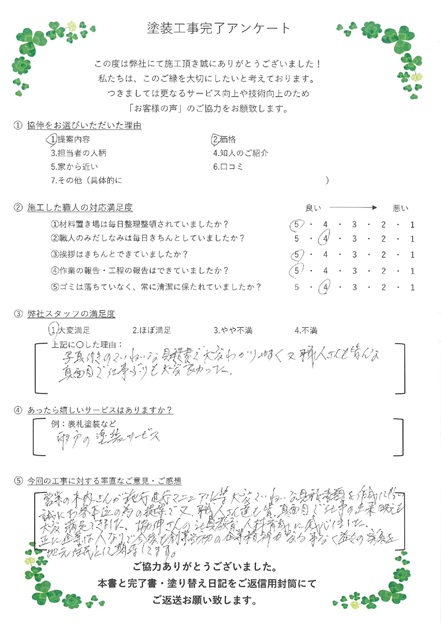 塗装工事完了アンケート
この度は弊社にて施工頂き誠にありがとうございました！
私たちは、このご縁を大切にしたいと考えております。
つきましては更なるサービス向上や技術向上のため
「お客様の声」のご協力をお願致します。
① 協伸をお選びいただいた理由
1.提案内容 2.価格
3.担当者の人柄 4.知人のご紹介
5.家から近い 6.口コミ
7.その他（具体的に ）
② 施工した職人の対応満足度 良い 悪い
①材料置き場は毎日整理整頓されていましたか？ 5 ・ 4 ・ 3 ・ 2 ・ 1
②職人のみだしなみは毎日きちんとしていましたか？ 5 ・ 4 ・ 3 ・ 2 ・ 1
③挨拶はきちんとできていましたか？ 5 ・ 4 ・ 3 ・ 2 ・ 1
④作業の報告・工程の報告はできていましたか？ 5 ・ 4 ・ 3 ・ 2 ・ 1
⑤ゴミは落ちていなく、常に清潔に保たれていましたか？ 5 ・ 4 ・ 3 ・ 2 ・ 1
③ 弊社スタッフの満足度
1.大変満足 2.ほぼ満足 3.やや不満 4.不満
上記に〇した理由：
写真付きのていねいな見積書で大変わかりやすく又職人さんも皆んな
真面目で仕事ぶりも大変良かった。
④ あったら嬉しいサービスはありますか？
例：表札塗装など
雨戸の塗装サービス
⑤ 今回の工事に対する率直なご意見・ご感想
営業の木内さんが
誠にお客本位の
大変満足できました。協伸さんの社員教育、人材育成に
正に企業は人なりで
地元
ご協力ありがとうございました。
本書と完了書・塗り替え日記をご返信用封筒にて
ご返送お願い致します。